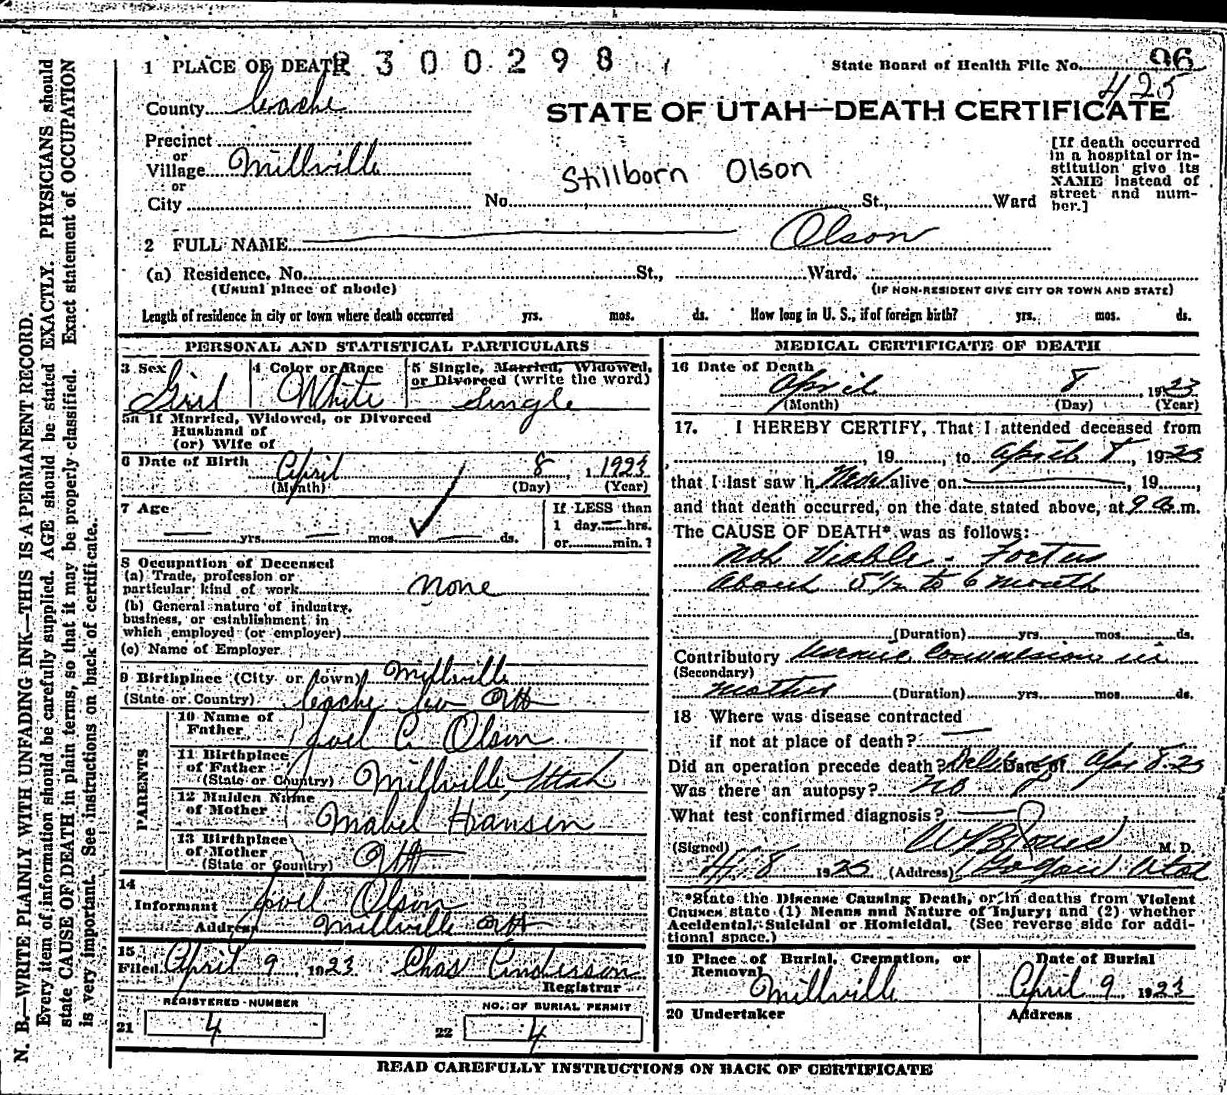 1 PLACE OF DEATH 2300298
State Board of Health File No. 96
425
County Cache
STATE OF UTAH—DEATH CERTIFICATE
Precinct
or
Village Millville
or
City
Stillborn Olson
No. St., Ward
[If death occurred
in a hospital or in-
stitution give its
NAME instead of
street and num-
ber.]
2 FULL NAME Olson
(a) Residence. No. St., Ward.
(Usual place of abode)
(IF NON-RESIDENT GIVE CITY OR TOWN AND STATE)
Length of residence in city or town where death occurred yrs. mos. ds. How long in U. S., if of foreign birth? yrs. mos. ds.
PERSONAL AND STATISTICAL PARTICULARS
3 Sex 4 Color or Race 5 Single, Married, Widowed,
or Divorced (write the word)
Girl White Single
5a If Married, Widowed, or Divorced
Husband of
(or) Wife of
6 Date of Birth April 8, 1923
(Month) (Day) (Year)
7 Age If LESS than
1 day — hrs.
— yrs. — mos. — ds. or min.?
8 Occupation of Deceased
(a) Trade, profession or
particular kind of work none
(b) General nature of industry,
business, or establishment in
which employed (or employer)
(c) Name of Employer
9 Birthplace (City or town) Millville
(State or Country) Cache
PARENTS
10 Name of
Father Joel C. Olson
11 Birthplace
of Father
(State or Country) Millville, Utah
12 Maiden Name
of Mother Mabel Hansen
13 Birthplace
of Mother
(State or Country)
14
Informant Joel Olson
Address Millville
15
Filed April 9, 1923 Chas Anderson
Registrar
REGISTERED NUMBER NO. OF BURIAL PERMIT
21 4 22 4
MEDICAL CERTIFICATE OF DEATH
16 Date of Death
April 8 1923
(Month) (Day) (Year)
17. I HEREBY CERTIFY, That I attended deceased from
, 19 , to April 8, 1923
that I last saw h alive on , 19 ,
and that death occurred, on the date stated above, at 9 a. m.
The CAUSE OF DEATH* was as follows:
Not Viable. Foetus
about 5 1/2 to 6 month
(Duration) yrs. mos. ds.
Contributory Uremic Convulsions in
(Secondary)
mother (Duration) yrs. mos. ds.
18 Where was disease contracted
if not at place of death? —
Did an operation precede death? Delivery Date of Apr 8-23
Was there an autopsy? no
What test confirmed diagnosis?
(Signed) M. D.
4/8 1923 (Address) Utah
*State the Disease Causing Death, or, in deaths from Violent
Causes state (1) Means and Nature of Injury; and (2) whether
Accidental, Suicidal or Homicidal. (See reverse side for addi-
tional space.)
19 Place of Burial, Cremation, or
Removal
Millville
Date of Burial
April 9 1923
20 Undertaker Address
READ CAREFULLY INSTRUCTIONS ON BACK OF CERTIFICATE
N. B.—WRITE PLAINLY WITH UNFADING INK—THIS IS A PERMANENT RECORD.
Every item of information should be carefully supplied. AGE should be stated EXACTLY. PHYSICIANS should
state CAUSE OF DEATH in plain terms, so that it may be properly classified. Exact statement of OCCUPATION
is very important. See instructions on back of certificate.